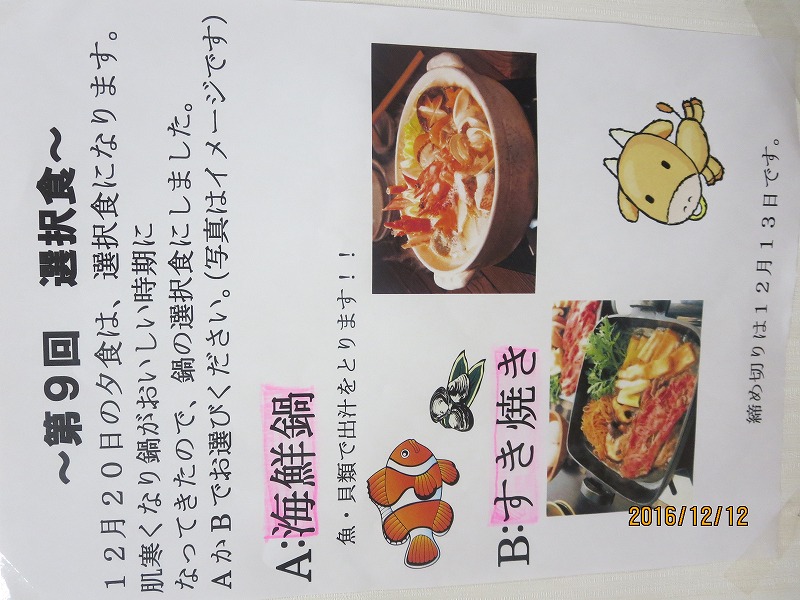 ~第９回　選択食~
１２月２０日の夕食は、選択食になります。
肌寒くなり鍋がおいしい時期に
なってきたので、鍋の選択食にしました。
ＡかＢでお選びください。(写真はイメージです)
A:海鮮鍋
魚・貝類で出汁をとります！！
B:すき焼き
締め切りは１２月１３日です。
2016/12/12